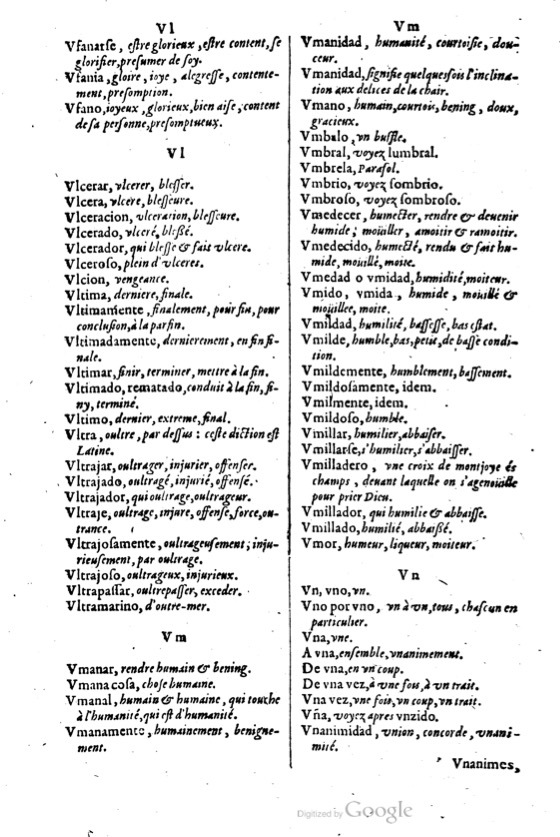 Vl
Vfanarſe, eſtre glorieux, eſtre content, ſe
glorifier, preſumer de ſoy.
Vfania, gloire, ioye, alegreſſe, contente-
ment, preſomption.
Vfano, ioyeux, glorieux, bien aiſe, content
de ſa perſonne, preſomptueux.
Vl
Vlcerar, vlcerer, bleſſer.
Vlcera, vlcere, bleſſeure.
Vlceracion, vlceration, bleſſeure.
Vlcerado, vlceré, bleßé.
Vlcerador, qui bleſſe & fait vlcere.
Vlceroſo, plein d'vlceres.
Vlcion, vengeance.
Vltima, derniere, finale.
Vltimamente, finalement, pour fin, pour
concluſion, à la parfin.
Vltimadamente, dernierement, en fin fi-
nale.
Vltimar, finir, terminer, mettre à la fin.
Vltimado, rematado, conduit à la fin, fi-
ny, terminé.
Vltimo, dernier, extreme, final.
Vltra, oultre, par deſſus : ceſte diction eſt
Latine.
Vltrajar, oultrager, injurier, offenſer.
Vltrajado, oultragé, injurié, offenſé.
Vltrajador, qui oultrage, oultrageur.
Vltraje, oultrage, injure, offenſe, force, ou-
trance.
Vltrajoſamente, oultrageuſement; inju-
rieuſement, par oultrage.
Vltrajoſo, oultrageux, injurieux.
Vltrapaſſar, oultrepaſſer, exceder.
Vltramarino, d'outre-mer.
Vm
Vmanar, rendre humain & bening.
Vmana coſa, choſe humaine.
Vmanal, humain & humaine, qui touche
à l'humanité, qui eſt d'humanité.
Vmanamente, humainement, benigne-
ment.
Vm
Vmanidad, humanité, courtoiſie, dou-
ceur.
Vmanidad, ſignifie quelquesfois l'inclina-
tion aux delices de la chair.
Vmano, humain, courtois, bening, doux,
gracieux.
Vmbalo, vn buffle.
Vmbral, voyez lumbral.
Vmbrela, Paraſol.
Vmbrio, voyez ſombrio.
Vmbroſo, voyez ſombroſo.
Vmedecer, humecter, rendre & deuenir
humide; moüiller, amoitir & ramoitir.
Vmedecido, humecté, rendu & fait hu-
mide, moüillé, moite.
Vmedad o vmidad, humidité, moiteur.
Vmido, vmida, humide, moüillé &
moüillee, moite.
Vmildad, humilité, baſſeſſe, bas eſtat.
Vmilde, humble, bas, petit, de baſſe condi-
tion.
Vmildemente, humblement, baſſement.
Vmildoſamente, idem.
Vmilmente, idem.
Vmildoſo, humble.
Vmillar, humilier, abbaiſer.
Vmillarſe, s'humilier, s'abbaiſſer.
Vmilladero, vne croix de montjoye és
champs, deuant laquelle on s'agenoüille
pour prier Dieu.
Vmillador, qui humilie & abbaiſſe.
Vmillado, humilié, abbaißé.
Vmor, humeur, liqueur, moiteur.
Vn
Vn, vno, vn.
Vno por vno, vn à vn, tous, chaſcun en
particulier.
Vna, vne.
A vna, enſemble, vnanimement.
De vna, en vn coup.
De vna vez, à vne fois, à vn trait.
Vna vez, vne fois, vn coup, vn trait.
Vña, voyez apres vnzido.
Vnanimidad, vnion, concorde, vnani-
mité.
Vnanimes,
Digitized by Google